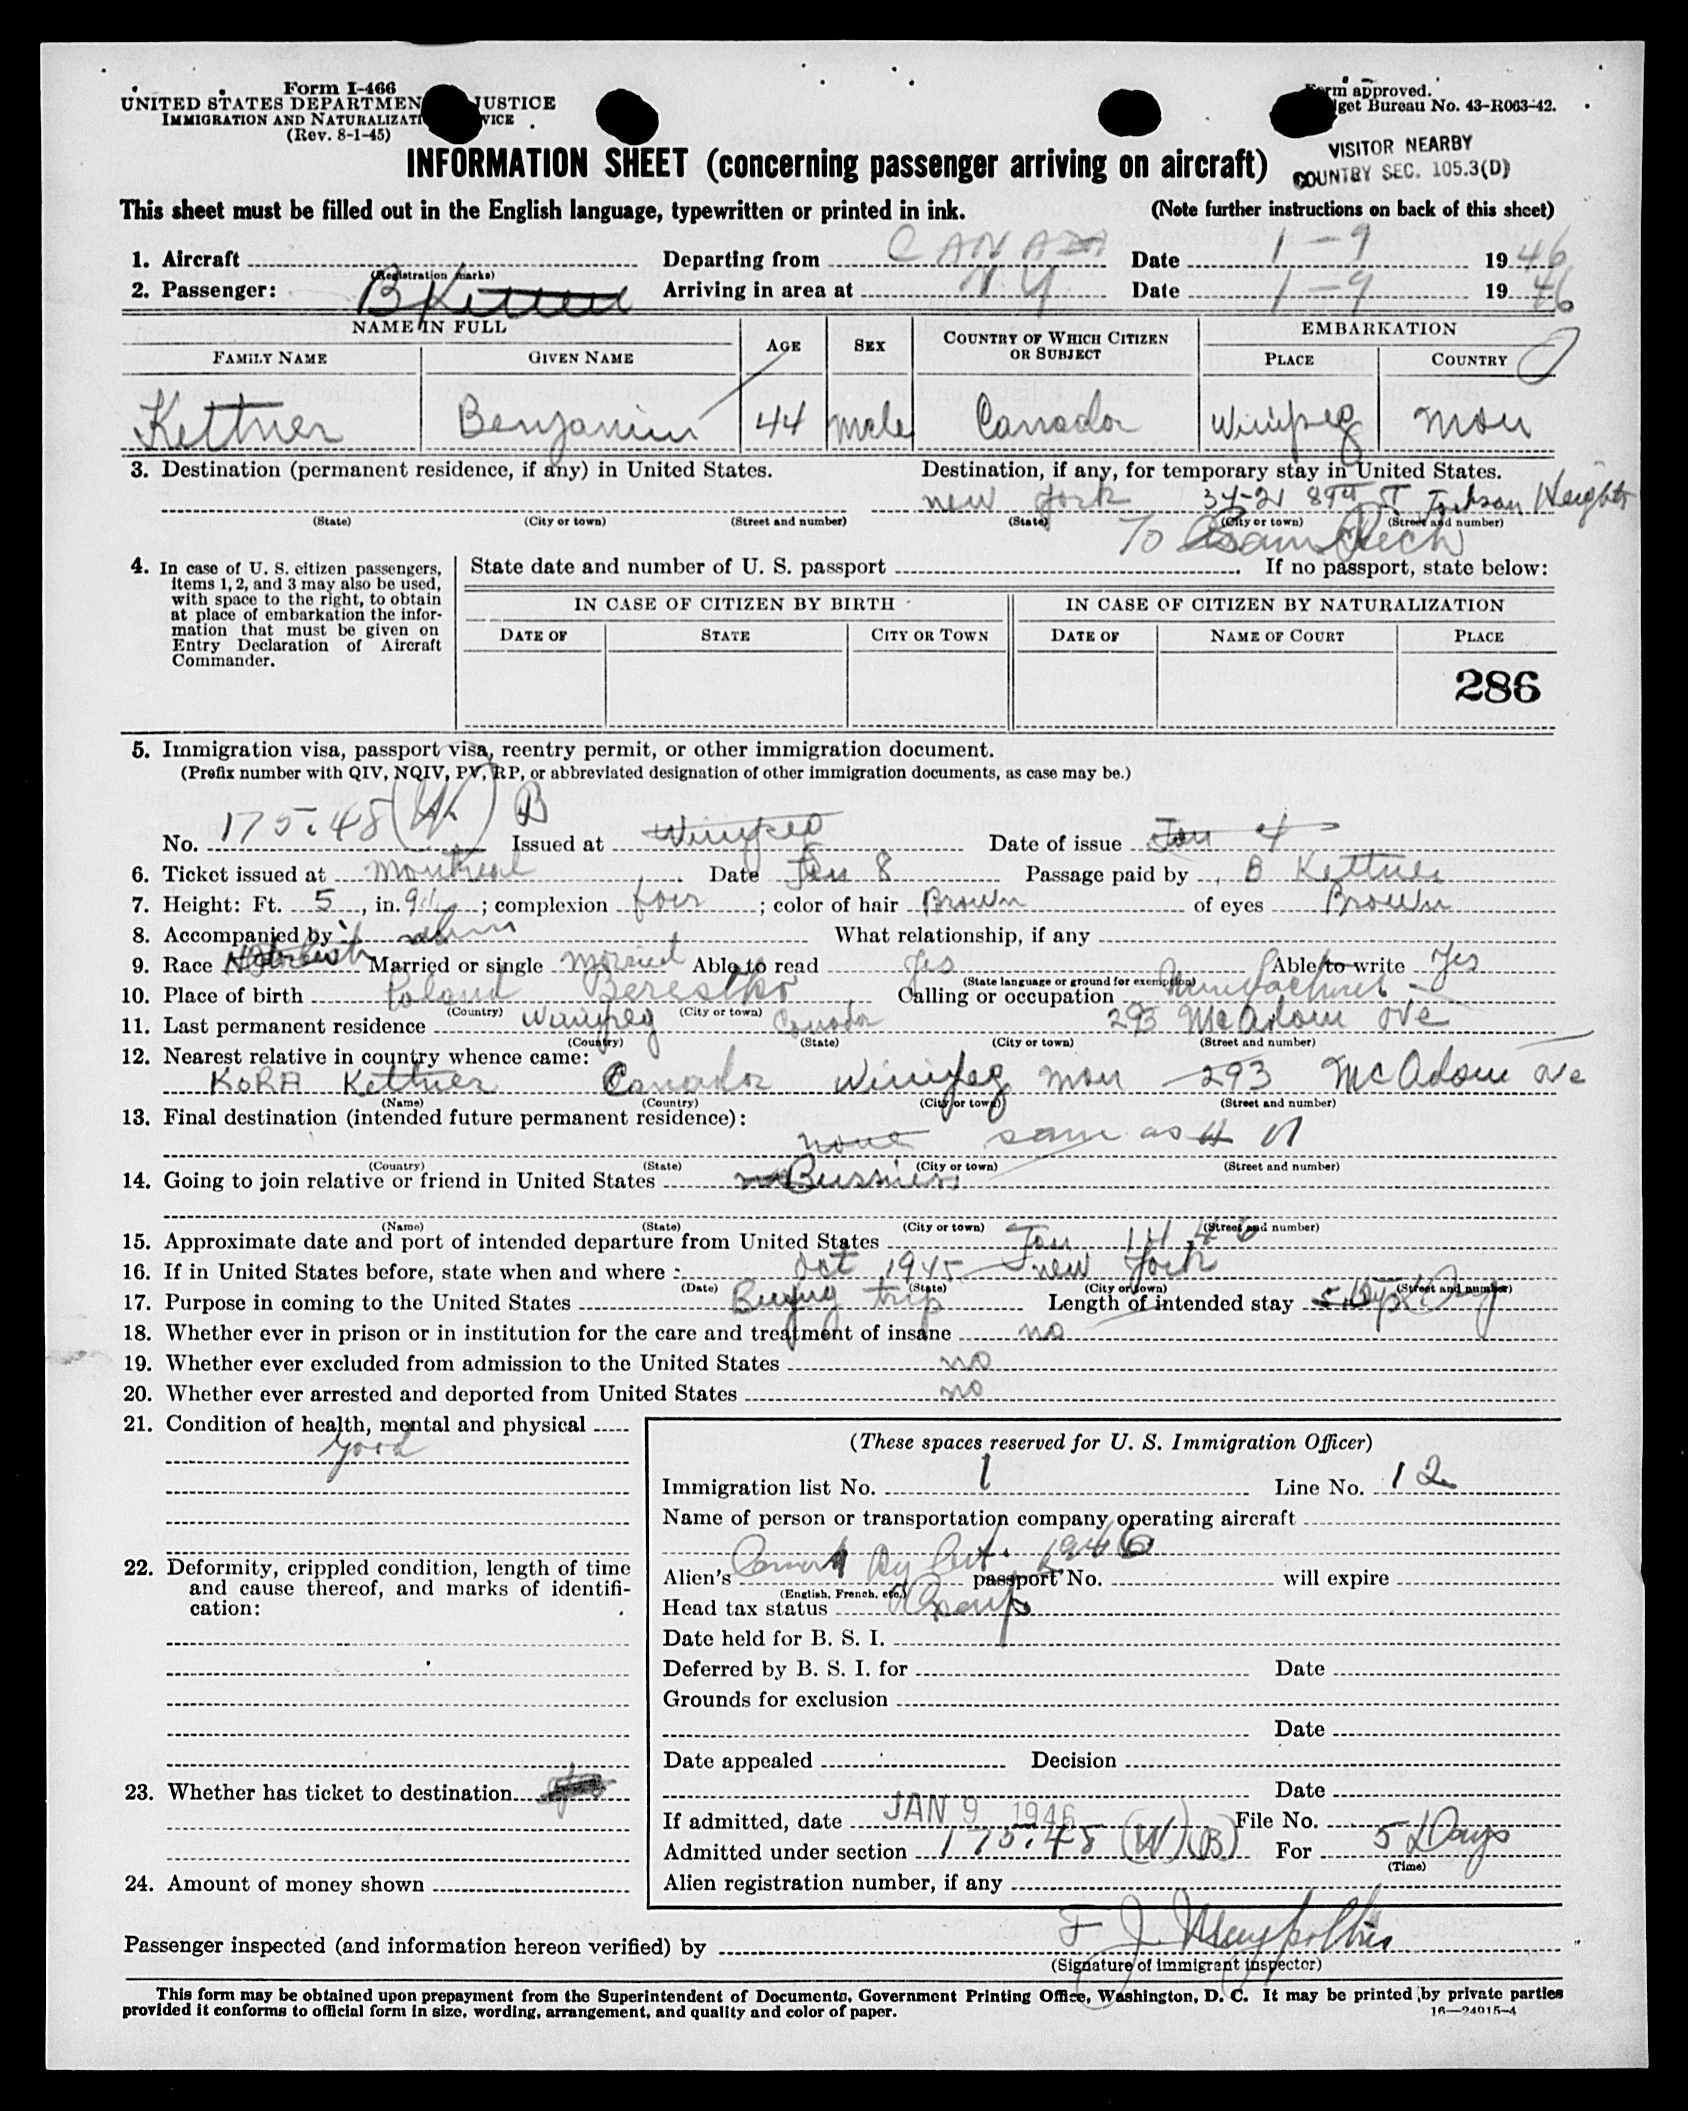 Form I-466
UNITED STATES DEPARTMEN USTICE
IMMIGRATION AND NATURALIZATI VICE
(Rev. 8-1-45)
rm approved.
get Bureau No. 43-R063-42.
VISITOR NEARBY
COUNTRY SEC. 105.3(D)
INFORMATION SHEET (concerning passenger arriving on aircraft)
This sheet must be filled out in the English language, typewritten or printed in ink. (Note further instructions on back of this sheet)
1. Aircraft Departing from CANADA Date 1-9 1946
(Registration marks)
2. Passenger: B Kettner Arriving in area at N.Y. Date 1-9 1946
NAME IN FULL AGE SEX COUNTRY OF WHICH CITIZEN OR SUBJECT EMBARKATION
FAMILY NAME GIVEN NAME PLACE COUNTRY
Kettner Benjamin 44 Male Canada Winnipeg Man
3. Destination (permanent residence, if any) in United States. Destination, if any, for temporary stay in United States.
New York 34-21 St Jackson Heights
(State) (City or town) (Street and number) (State) (City or town) (Street and number)
To Sam
4. In case of U. S. citizen passengers, items 1, 2, and 3 may also be used, with space to the right, to obtain at place of embarkation the information that must be given on Entry Declaration of Aircraft Commander.
State date and number of U. S. passport If no passport, state below:
IN CASE OF CITIZEN BY BIRTH IN CASE OF CITIZEN BY NATURALIZATION
DATE OF STATE CITY OR TOWN DATE OF NAME OF COURT PLACE
286
5. Immigration visa, passport visa, reentry permit, or other immigration document.
(Prefix number with QIV, NQIV, PV, RP, or abbreviated designation of other immigration documents, as case may be.)
No. 175.45 B Issued at Winnipeg Date of issue Jan 4
6. Ticket issued at Montreal Date Jan 8 Passage paid by B Kettner
7. Height: Ft. 5, in. 9; complexion fair; color of hair Brown of eyes Brown
8. Accompanied by What relationship, if any
9. Race Hebrew Married or single Married Able to read Yes Able to write Yes
(State language or ground for exemption)
10. Place of birth Poland Berestko Calling or occupation
(Country) (City or town)
11. Last permanent residence Winnipeg Canada 293 McAdam Ave
(Country) (State) (City or town) (Street and number)
12. Nearest relative in country whence came:
KORA Kettner Canada Winnipeg Man 293 McAdam Ave
(Name) (Country) (City or town) (Street and number)
13. Final destination (intended future permanent residence):
none same as # 11
(Country) (State) (City or town) (Street and number)
14. Going to join relative or friend in United States no Bussines
(Name) (State) (City or town) (Street and number)
15. Approximate date and port of intended departure from United States Jan 14 46
16. If in United States before, state when and where: Oct 1945 New York
(Date) (State) (City or town) (Street and number)
17. Purpose in coming to the United States Buying trip Length of intended stay 5 Days
18. Whether ever in prison or in institution for the care and treatment of insane no
19. Whether ever excluded from admission to the United States no
20. Whether ever arrested and deported from United States no
21. Condition of health, mental and physical
good
22. Deformity, crippled condition, length of time and cause thereof, and marks of identification:
23. Whether has ticket to destination
24. Amount of money shown
(These spaces reserved for U. S. Immigration Officer)
Immigration list No. 1 Line No. 12
Name of person or transportation company operating aircraft
Alien's passport No. will expire
(English, French, etc.)
Head tax status
Date held for B. S. I.
Deferred by B. S. I. for Date
Grounds for exclusion
Date
Date appealed Decision
Date
If admitted, date JAN 9 1946 File No.
Admitted under section 175.45 (W)(B) For 5 Days
(Time)
Alien registration number, if any
Passenger inspected (and information hereon verified) by F J
(Signature of immigrant inspector)
This form may be obtained upon prepayment from the Superintendent of Documents, Government Printing Office, Washington, D. C. It may be printed by private parties
provided it conforms to official form in size, wording, arrangement, and quality and color of paper.
16—24015-4